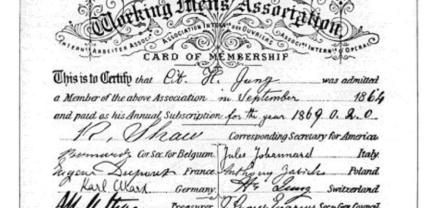 Working Men's Association
INTERN. ARBEITER ASSOC. ASSOCIATION INTERN. DES OUVRIERS ASSOC. INTERN. OPERAI
CARD OF MEMBERSHIP
This is to Certify that Cit. H. Jung was admitted
a Member of the above Association in September 1864
and paid as his Annual Subscription for the year 1869 0.2.0
R. Shaw Corresponding Secretary for America
Cor. Sec. for Belgium Jules Johannard Italy
Eugene Dupont France. Anthony Zabicki Poland
Karl Marx Germany. H. Jung Switzerland
Treasurer. Sec. Gen. Council